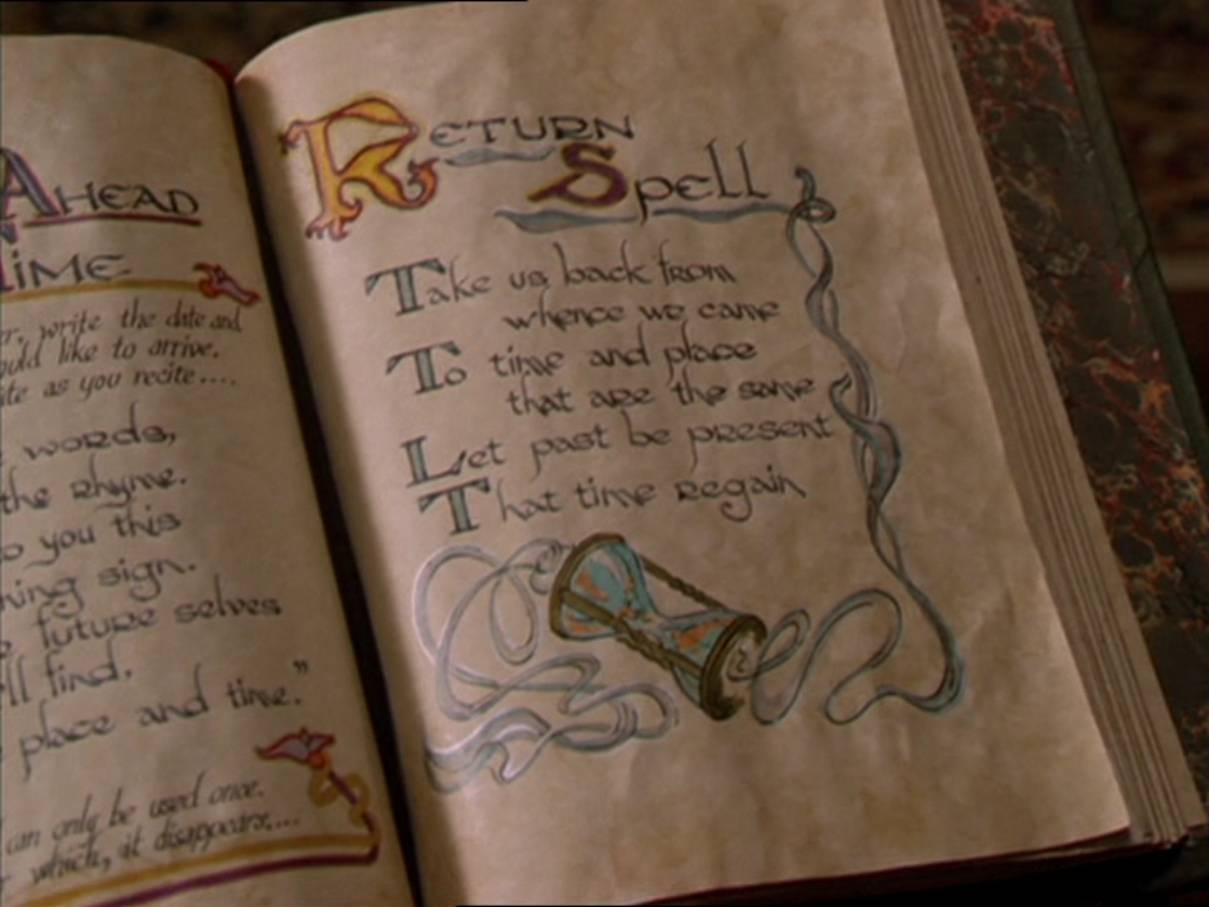 Ahead
Time
write the date and
would like to arrive.
as you recite....
words,
the rhyme.
you this
sign.
future selves
find.
place and time."
can only be used once.
which, it disappears....
Return
Spell
Take us back from
whence we came
To time and place
that are the same
Let past be present
That time regain